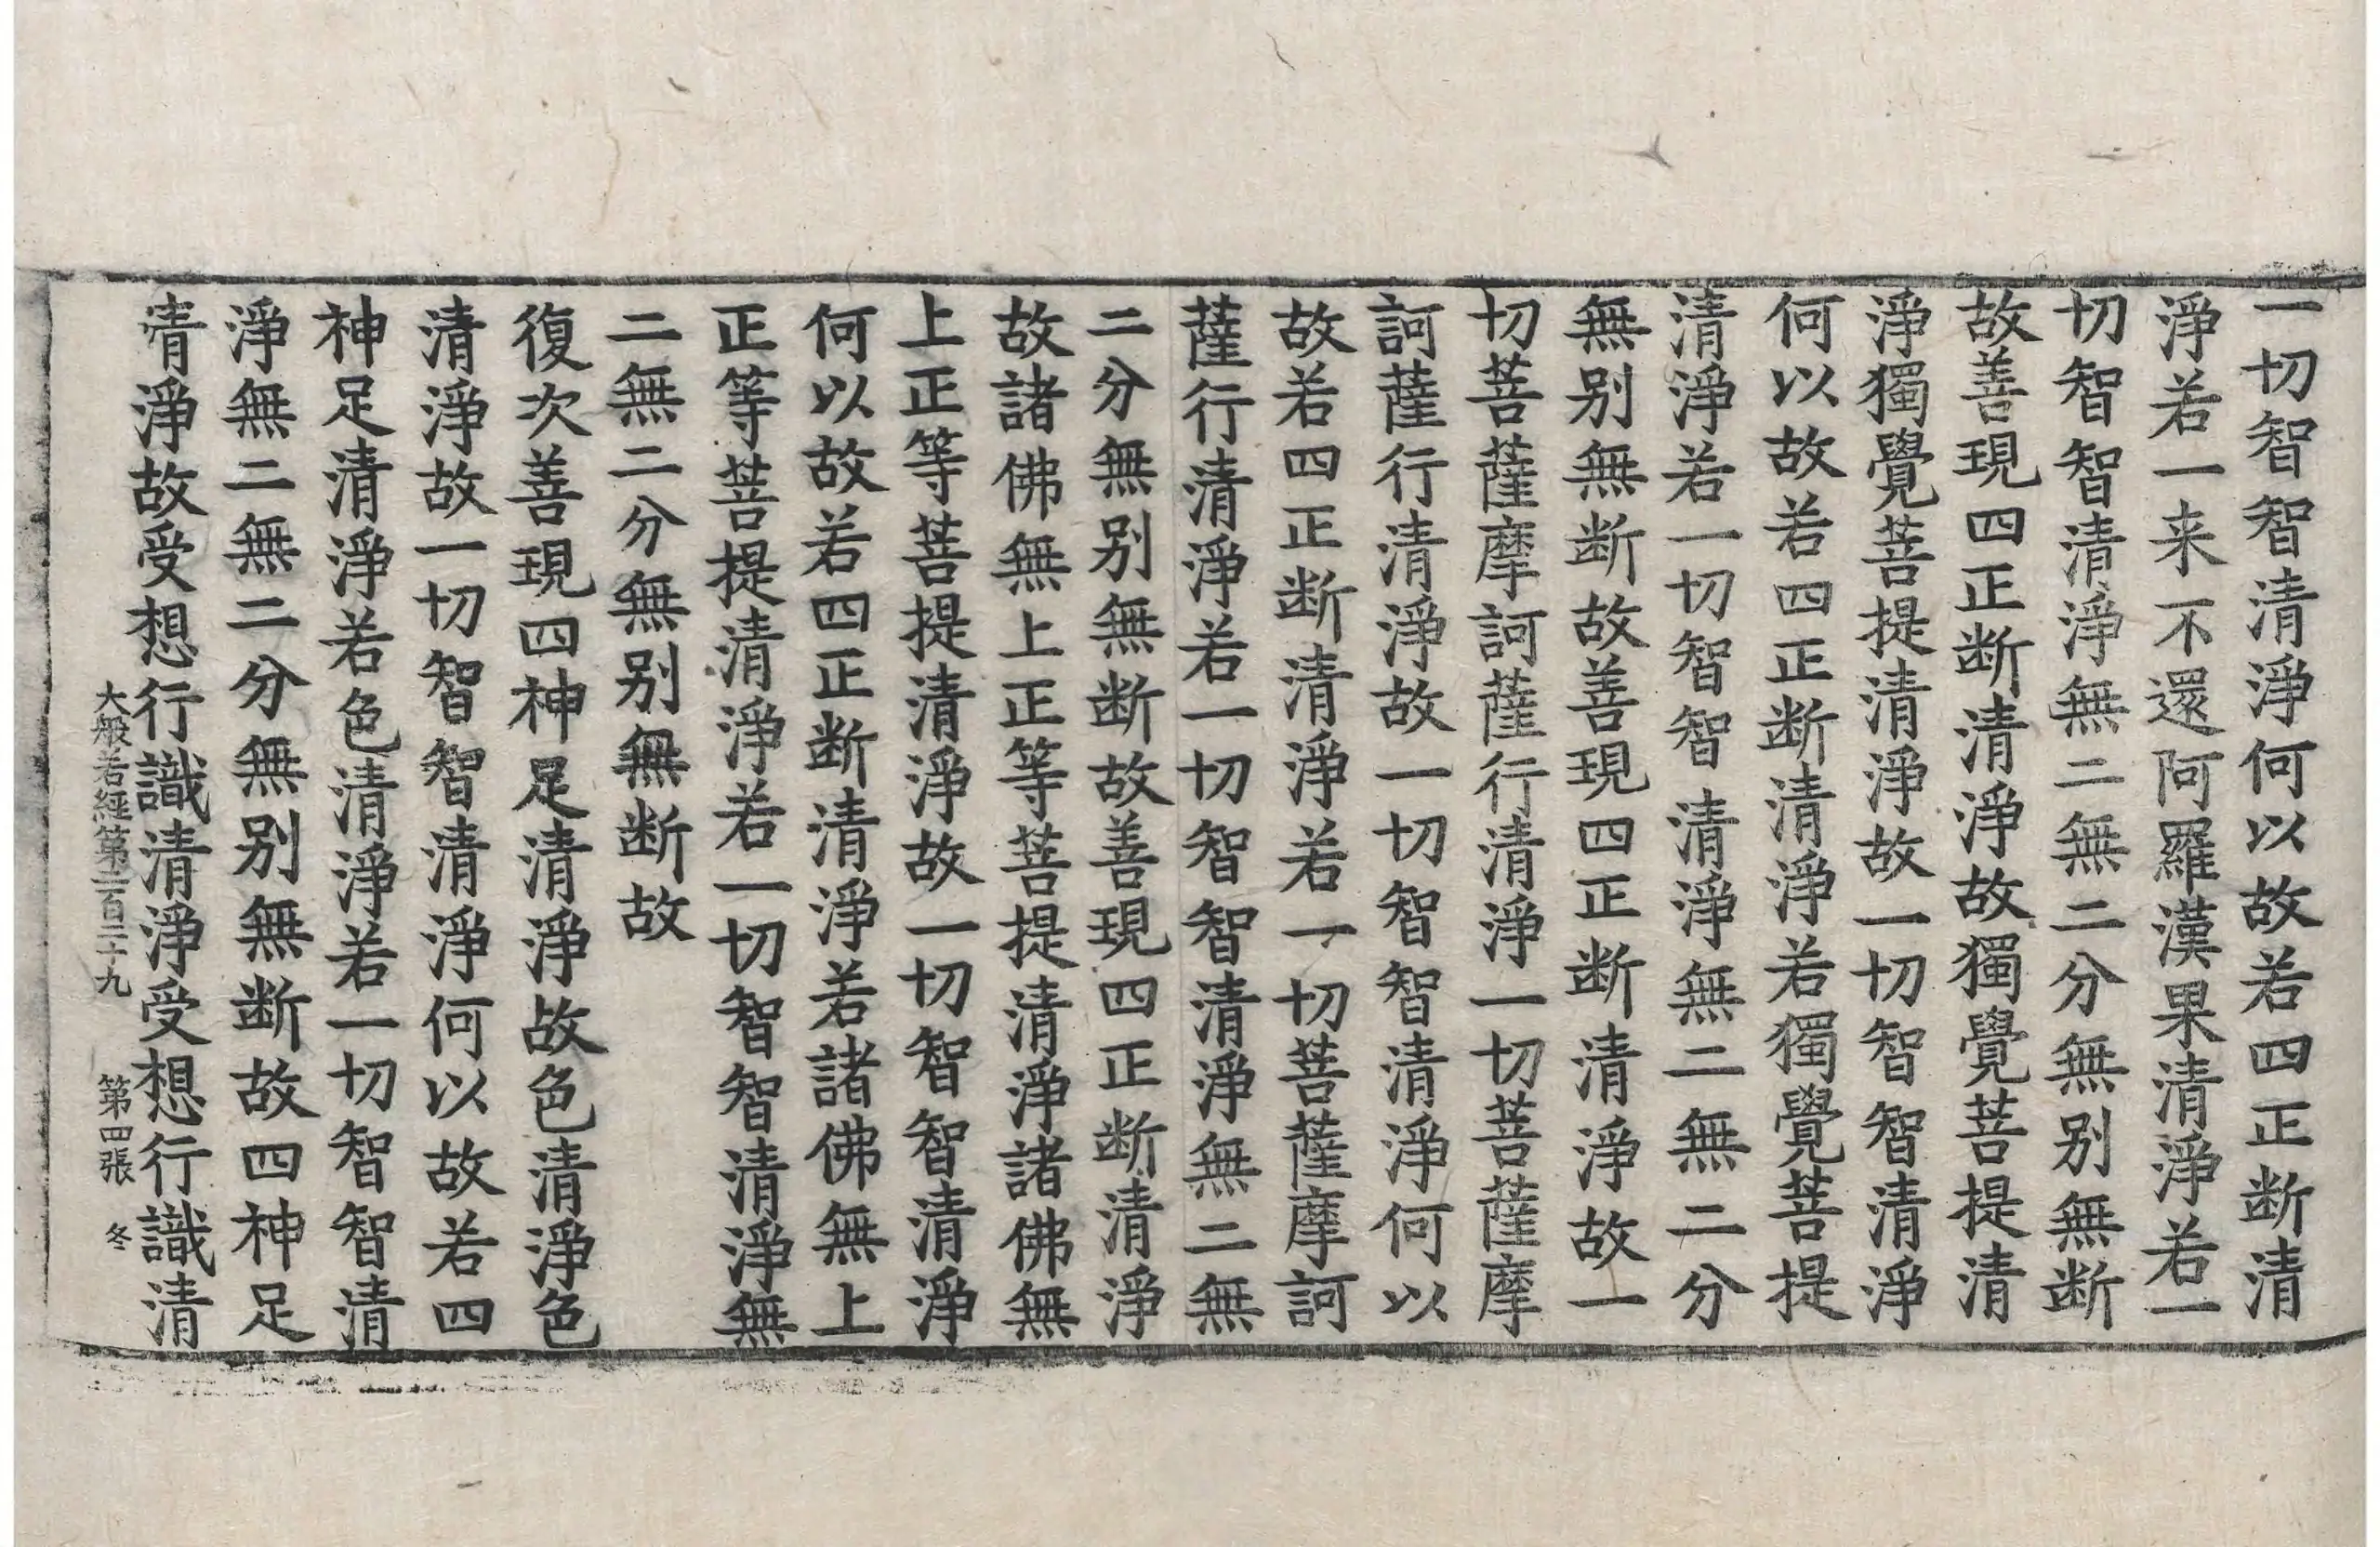 一切智智清淨何以故若四正断清
淨若一来不還阿羅漢果清淨若一
切智智清淨無二無二分無别無断
故善現四正断清淨故獨覺菩提清
淨獨覺菩提清淨故一切智智清淨
何以故若四正断清淨若獨覺菩提
清淨若一切智智清淨無二無二分
無别無断故善現四正断清淨故一
切菩薩摩訶薩行清淨一切菩薩摩
訶薩行清淨故一切智智清淨何以
故若四正断清淨若一切菩薩摩訶
薩行清淨若一切智智清淨無二無
二分無别無断故善現四正断清淨
故諸佛無上正等菩提清淨諸佛無
上正等菩提清淨故一切智智清淨
何以故若四正断清淨若諸佛無上
正等菩提清淨若一切智智清淨無
二無二分無别無断故
復次善現四神足清淨故色清淨色
清淨故一切智智清淨何以故若四
神足清淨若色清淨若一切智智清
淨無二無二分無别無断故四神足
清淨故受想行識清淨受想行識清
大般若經第二百二十九 第四張 冬